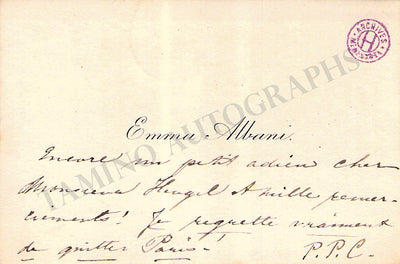 ARCHIVES H
TAMINO AUTOGRAPHS
Emma Albani.
Encore un petit adieu cher
Monsieur Heugel & mille remer-
ciements! Je regrette vraiment
de quitter Paris-!
P.P.C-